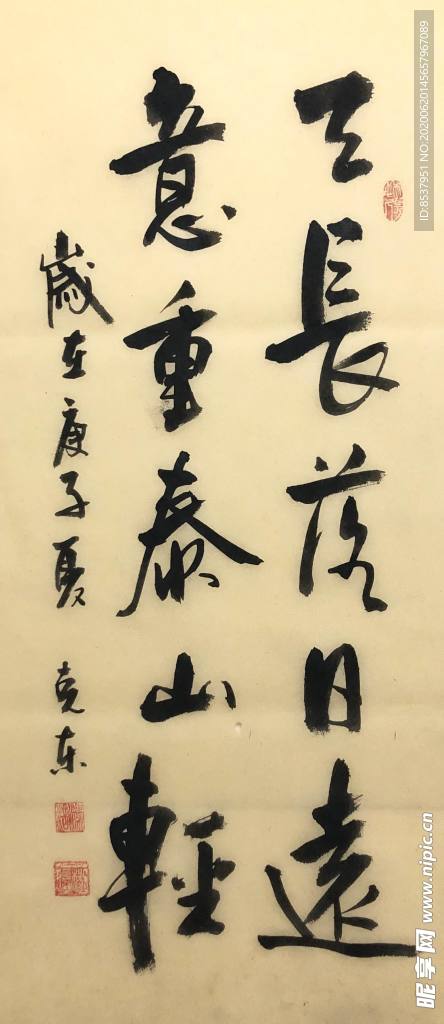 天長落日遠
意重泰山輕
歲在庚子夏 克东
ID:8537951 NO:20200620145657967089
昵享网 www.nipic.cn